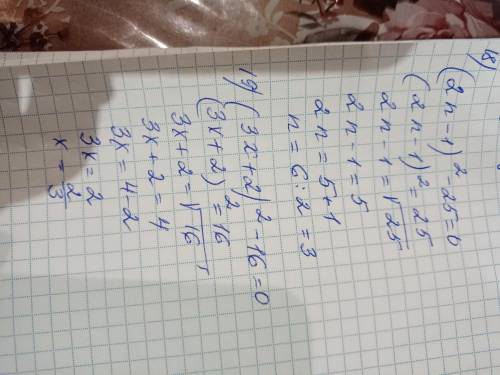 18) (2n-1)² - 25 = 0
(2n-1)² = 25
2n-1 = √25
2n-1 = 5
2n = 5+1
n = 6:2 = 3
19) (3x+2)² - 16 = 0
(3x+2)² = 16
3x+2 = √16
3x+2 = 4
3x = 4-2
3x = 2
x = 2/3